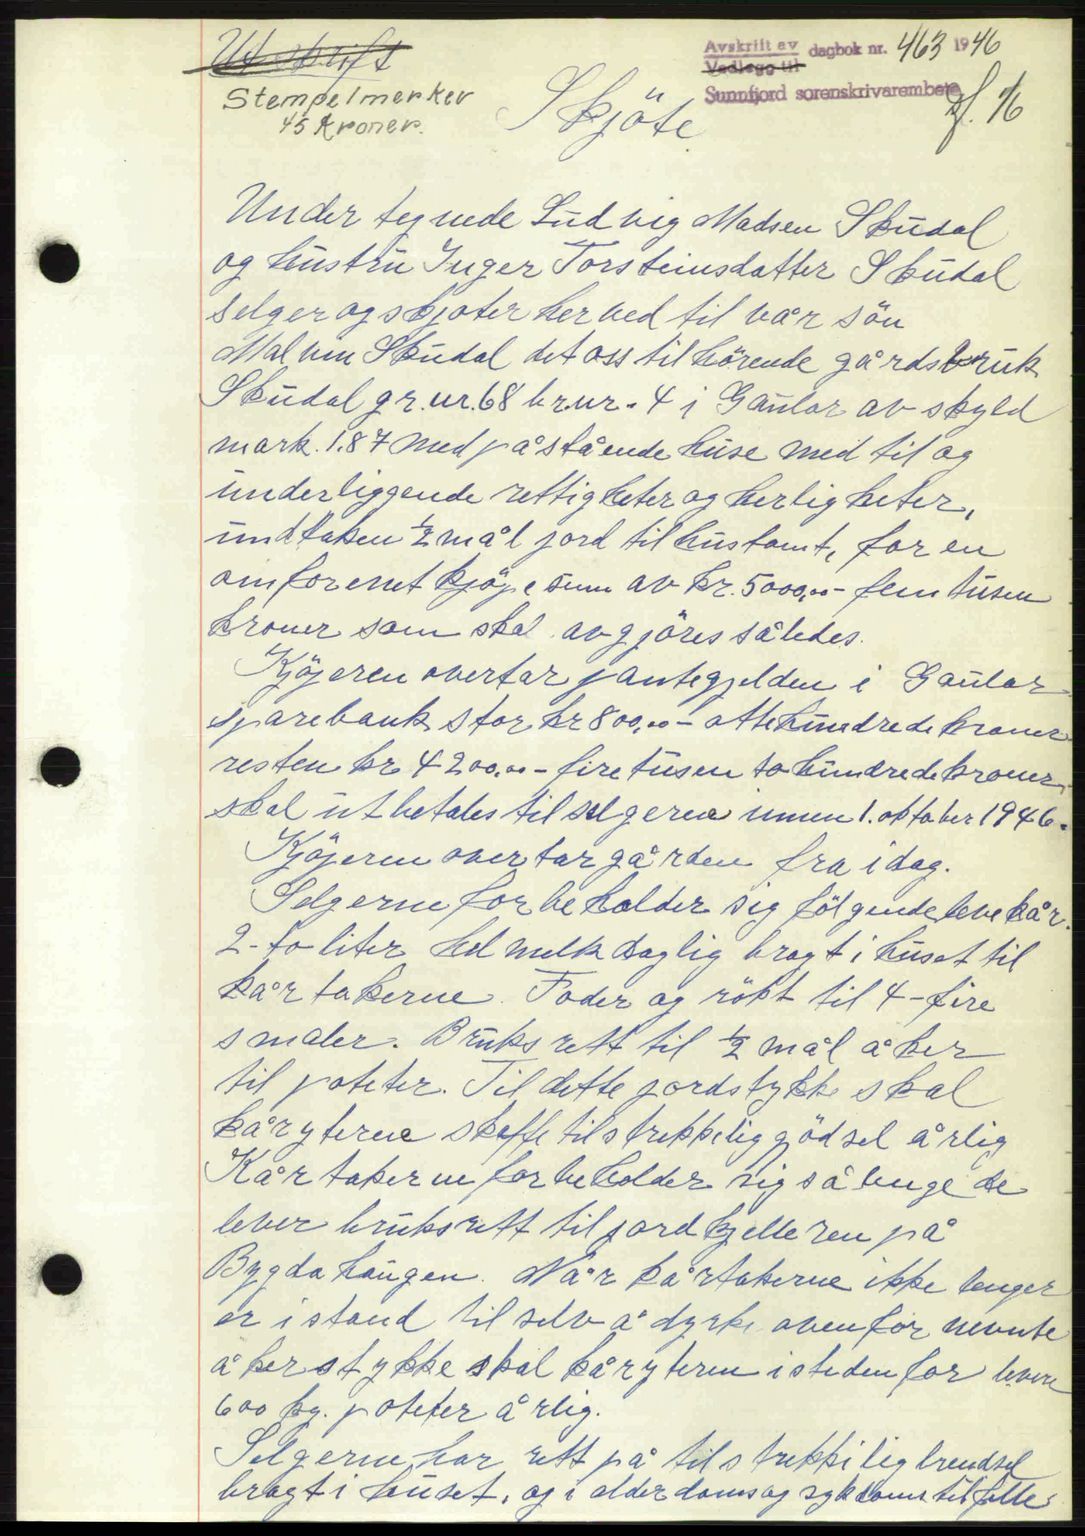 Utskrift
Avskrift av dagbok nr. 463 1946
Vedlegg til
Stempelmerker
Sunnfjord sorenskrivarembete
45 Kroner.
Skjöte
Undertegnede Ludvig Madsen Skudal
og hustru Inger Torsteinsdatter Skudal
selger og skjøter herved til vår sön
Malvin Skudal det oss tilhörende gårdsbruk
Skudal gr.nr. 68 br.nr. 4 i Gaular av skyld
mark. 1.87 med påstående huse med til og
underliggende rettigheter og herligheter,
undtaken ½ mål jord til hustomt, for en
omforenet kjöpesum av kr. 5000,00 - fem tusen
kroner som skal avgjöres således.
Kjöperen overtar pantegjelden i Gaular
sparebank stor kr 800,00 - åttehundrede kroner
resten kr 4200,00 - firetusen to hundrede kroner
skal utbetales til selgerne innen 1. oktober 1946.
Kjöperen overtar gården fra idag.
Selgerne forbeholder sig fölgende levekår.
2 - to liter helmelk daglig bragt i huset til
kårtakerne. Foder og rökt til 4 - fire
smaler. Bruksrett til ½ mål åker
til poteter. Til dette jordstykke skal
kåryterne skaffe tilstrekkelig gjödsel årlig
Kårtakerne forbeholder sig så lenge de
lever bruksrett til jordkjelleren på
Bygdahaugen. Når kårtakerne ikke lenger
er istand til selv å dyrke ovenfor nevnte
åkerstykke skal kåryteren isteden for levere
600 kg. poteter årlig.
Selgerne har rett på tilstrekkelig brendsel
bragt i huset, og i alderdoms og sykdomstilfelle